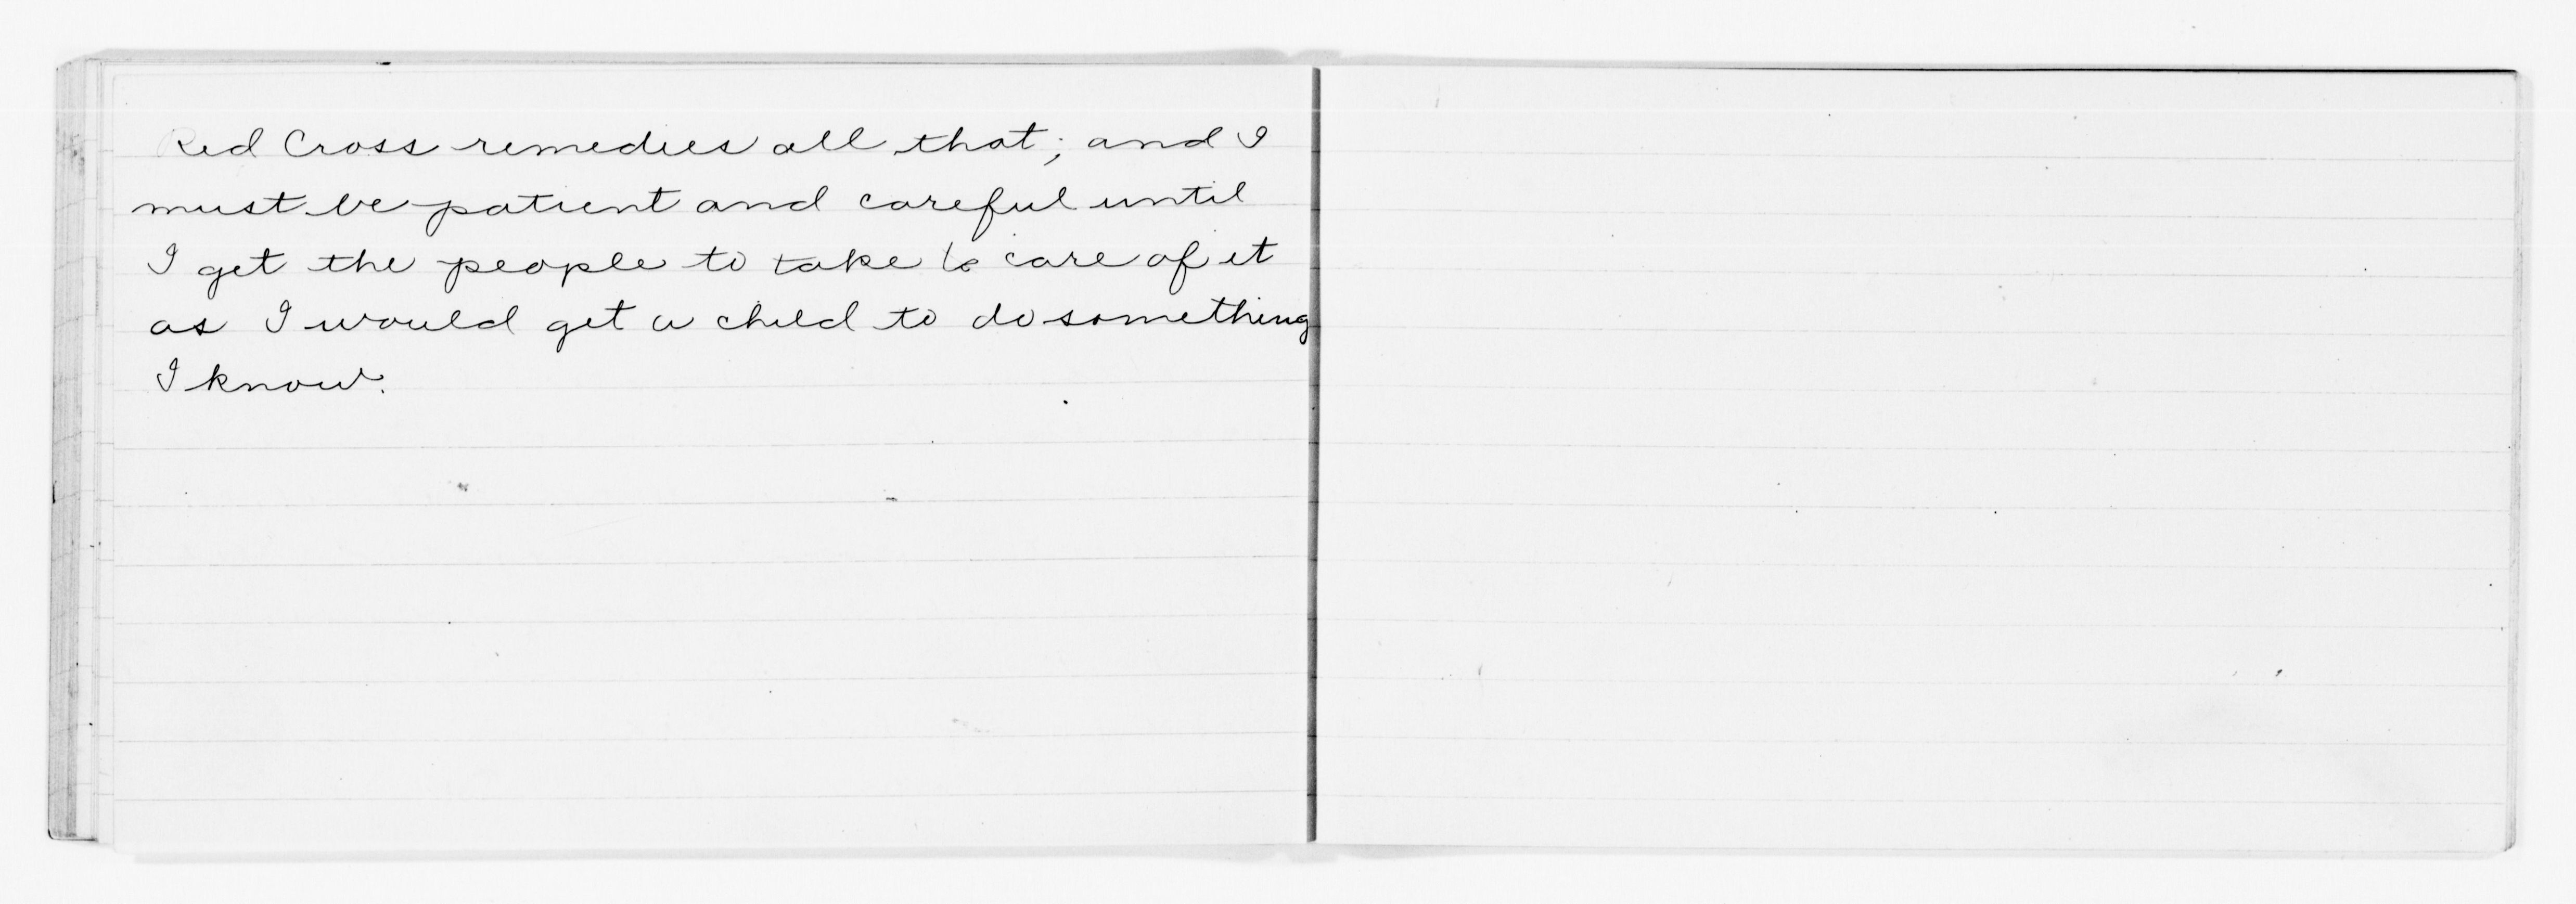 Red Cross remedies all that; and I
must be patient and careful until
I get the people to take care of it
as I would get a child to do something
I know.